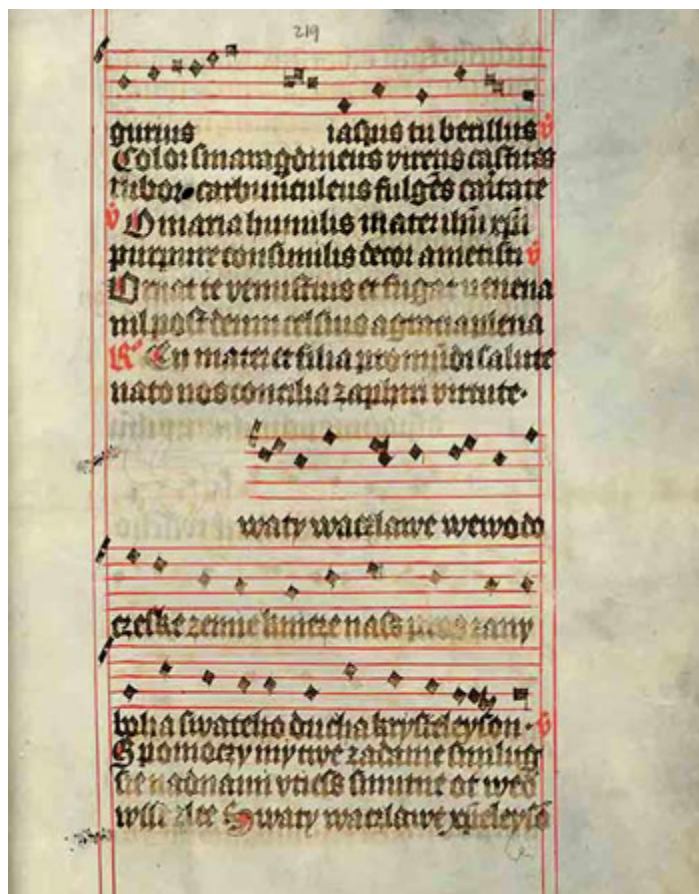 219
gurius iaspus tu berillus v̄
Color smaragdineus virens castitas
rubor carbunculeus fulgēs caritate
v̄ O maria humilis mater ihū xpī
purpure consimilis decor ametisti v̄
Ornat te venustius et fugat venena
nil post deum celsius a gracia plena
R En mater et filia pro mūdi salute
nato nos concilia zaphiri virtute
waty waczlawe wewodo
czeske zemie knieze nass pros zany
boha swateho ducha krysteleyson v̄
S pomoczy my twe zadame smilug
sie nad nami vtiess smutne ot wed
wsse zlee Swaty waczlawe xp̄eleysō